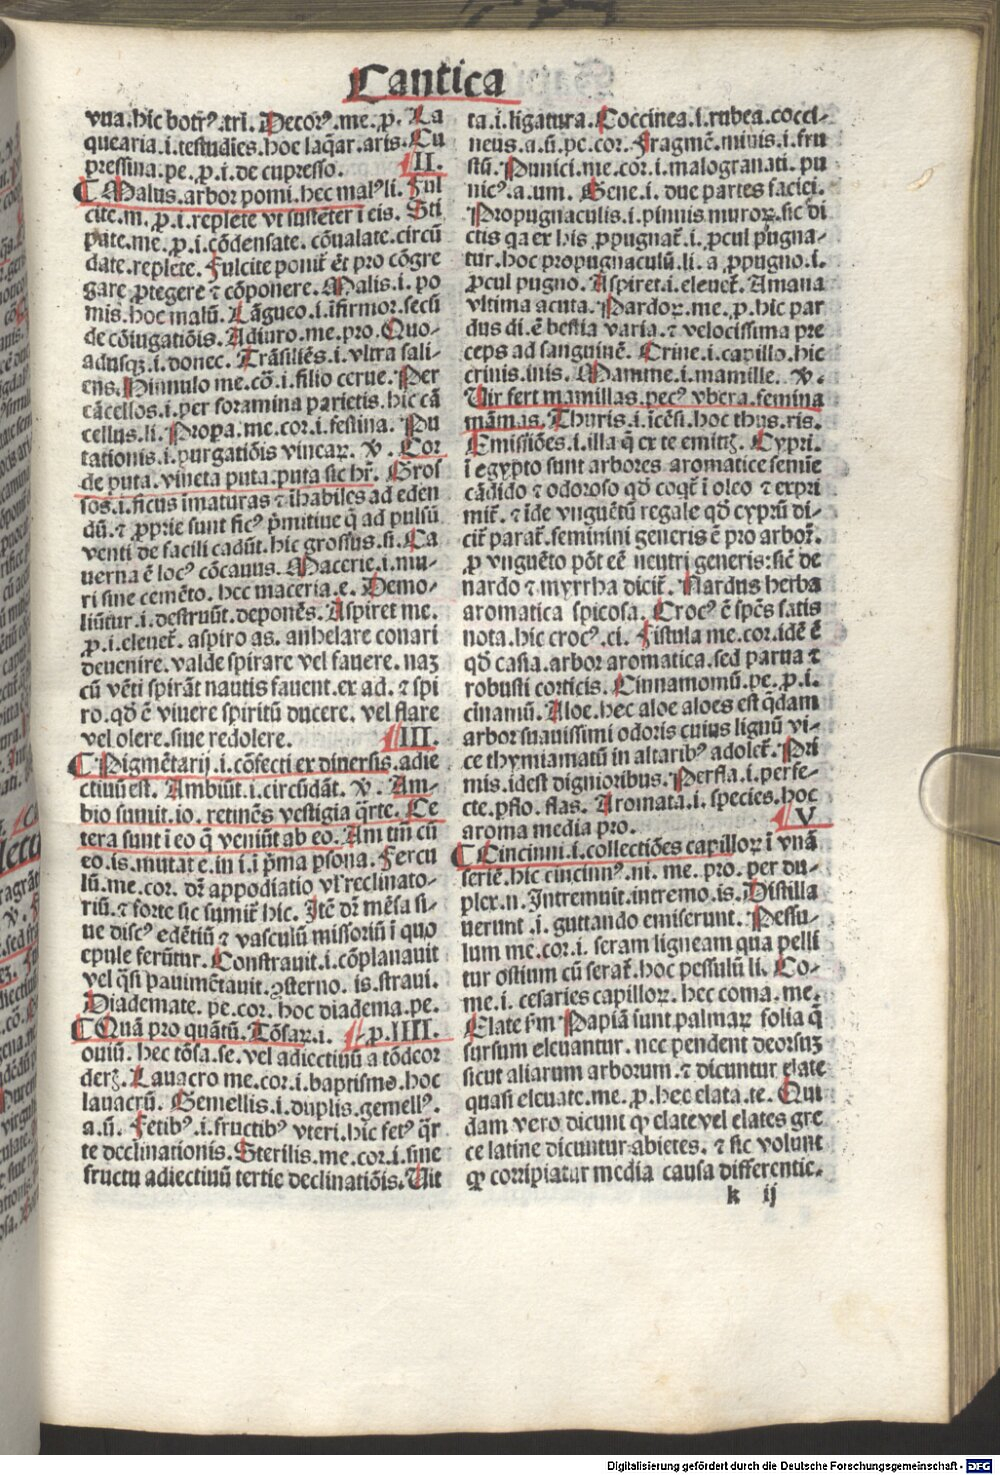 Cantica
vna.hic botrꝰ.tri. Decorꝰ.me.ꝓ. La
quearia.i.testudies.hoc laq̃ar.aris. Cu
pressina.pe.ꝓ.i.de cupresso. II.
Malus.arbor pomi.hec malꝰ li. Ful
cite.m.ꝓ.i.replete vt sustẽter i eis. Sti
pate.me.ꝓ.i.cõdensate.cõualate.circũ
date.replete. Fulcite ponit̃ ẽt pro cõgre
gare ꝓtegere ⁊ cõponere. Malis.i.po
mis.hoc malũ. Lãgueo.i.ĩfirmor.secũ
de cõiugatiõis. Adiuro.me.pro. Quo-
adusqꝫ.i.donec. Trãsiliẽs.i.vltra sali-
ens. Hinnulo me.cõ.i.filio cerue. Per
cãcellos.i.per foramina parietis.hic cã
cellus.li. Propa.me.cor.i.festina. Pu
tationis.i.purgatiõis vineaꝝ. v. Cor
de puta.vineta puta.puta sic hr̃. Gros
sos.i.ficus ĩmaturas ⁊ ĩhabiles ad eden
dũ.⁊ ꝓprie sunt ficꝰ p̃mitiue q̃ ad pulsũ
venti de facili cadũt.hic grossus.si. Ca
uerna ẽ locꝰ cõcauus. Macerie.i.mu-
ri sine cemẽto.hec maceria.e. Demo-
liũtur.i.destruũt.deponẽs. Aspiret me.
ꝓ.i.eleuet̃.aspiro as.anhelare conari
deuenire.valde spirare vel fauere.naꝫ
cũ vẽti spirãt nautis fauent.ex ad.⁊ spi
ro.qd̃ ẽ viuere spiritũ ducere.vel flare
vel olere.siue redolere. III.
Pigmẽtarij.i.cõfecti ex diuersis.adie
ctiuũ est. Ambiũt.i.circũdãt. v. Am-
bio sumit.io.retinẽs vestigia q̃rte. Ce
tera sunt i eo q̃ veniũt ab eo. Am tm̃ cũ
eo.is.mutat e.in i.i p̃ma psona. Fercu
lũ.me.cor. dr̃ appodiatio vl̃ reclinato-
riũ.⁊ forte sic sumit̃ hic. Itẽ dr̃ mẽsa si-
ue discꝰ edẽtiũ ⁊ vasculũ missoriũ ĩ quo
epule ferũtur. Constrauit.i.cõplanauit
vel q̃si pauimẽtauit.ꝯsterno.is.straui.
Diademate.pe.cor.hoc diadema.pe.
Quã pro quãtũ. Tõsaꝝ.i. p.IIII.
ouiũ.hec tõsa.se.vel adiectiuũ a tõdeor
derꝫ. Lauacro me.cor.i.baptismo.hoc
lauacrũ. Gemellis.i.duplis.gemellꝰ.
a.ũ. Fetibꝰ.i.fructibꝰ vteri.hic fetꝰ q̃r
te declinationis. Sterilis.me.cor.i.sine
fructu adiectiuũ tertie declinatiõis. Uit
ta.i.ligatura. Coccinea.i.rubea.cocci-
neus.a.ũ.pe.cor. Fragmẽ.minis.i.fru
stũ. Punici.me.cor.i.malogranati.pu
nicꝰ.a.um. Gene.i.due partes faciei.
Propugnaculis.i.pinnis muroꝝ.sic di
ctis qa ex his ꝓpugnat̃.i.ꝓcul pugna-
tur.hoc propugnaculũ.li.a ꝓpugno.i.
ꝓcul pugno. Aspiret.i.eleuet̃. Amana
vltima acuta. Pardoꝝ.me.ꝓ.hic par
dus di.ẽ bestia varia.⁊ velocissima pre
ceps ad sanguinẽ. Crine.i.capillo.hic
crinis.inis. Mamme.i.mamille. v.
Uir fert mamillas.pecꝰ vbera.femina
mãmas. Thuris.i.icẽsi.hoc thus.ris.
Emissiões.i.illa q̃ ex te emittꝫ. Cypri.
ĩ egypto sunt arbores aromatice semie
cãdido ⁊ odoroso qd̃ coqt̃ ĩ oleo ⁊ expri
mit̃.⁊ ĩde vnguẽtũ regale qd̃ cyprũ di-
cit̃ parat̃.feminini generis ẽ pro arboꝝ.
ꝓ vnguẽto põt eẽ neutri generis:sic̃ de
nardo ⁊ myrrha dicit̃. Nardus herba
aromatica spicosa. Crocꝰ ẽ spẽs satis
nota.hic crocꝰ.ci. Fistula me.cor.idẽ ẽ
qd̃ casia.arbor aromatica.sed parua ⁊
robusti corticis. Cinnamomũ.pe.ꝓ.i.
cinamũ. Aloe.hec aloe aloes est q̃dam
arbor suauissimi odoris cuius lignũ vi-
ce thymiamatũ in altaribꝰ adolet̃. Pri
mis.idest dignioribus. Perfla.i.perfe-
cte.pflo.flas. Aromata.i.species.hoc
aroma media pro. V.
Cincinni.i.collectiões capilloꝝ ĩ vnã
seriẽ.hic cincinnꝰ.ni.me.pro.per du-
plex.n. Intremuit.intremo.is. Distilla
uerunt.i.guttando emiserunt. Pessu-
lum me.cor.i.seram ligneam qua pelli
tur ostium cũ serat̃.hoc pessulũ li. Co-
me.i.cesaries capilloꝝ.hec coma.me.
Elate fm Papiã sunt palmaꝝ folia q̃
sursum eleuantur.nec pendent deorsuꝫ
sicut aliarum arborum.⁊ dicuntur elate
quasi eleuate.me.ꝓ.hec elata.te. Qui
dam vero dicunt qꝙ elate vel elates gre
ce latine dicuntur abietes.⁊ sic volunt
qꝙ corripiatur media causa differentie.
k ij
Digitalisierung gefördert durch die Deutsche Forschungsgemeinschaft - DFG